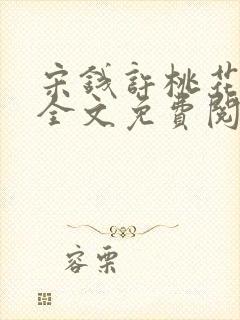 宋钱許桃花
全文免費閱
容栗